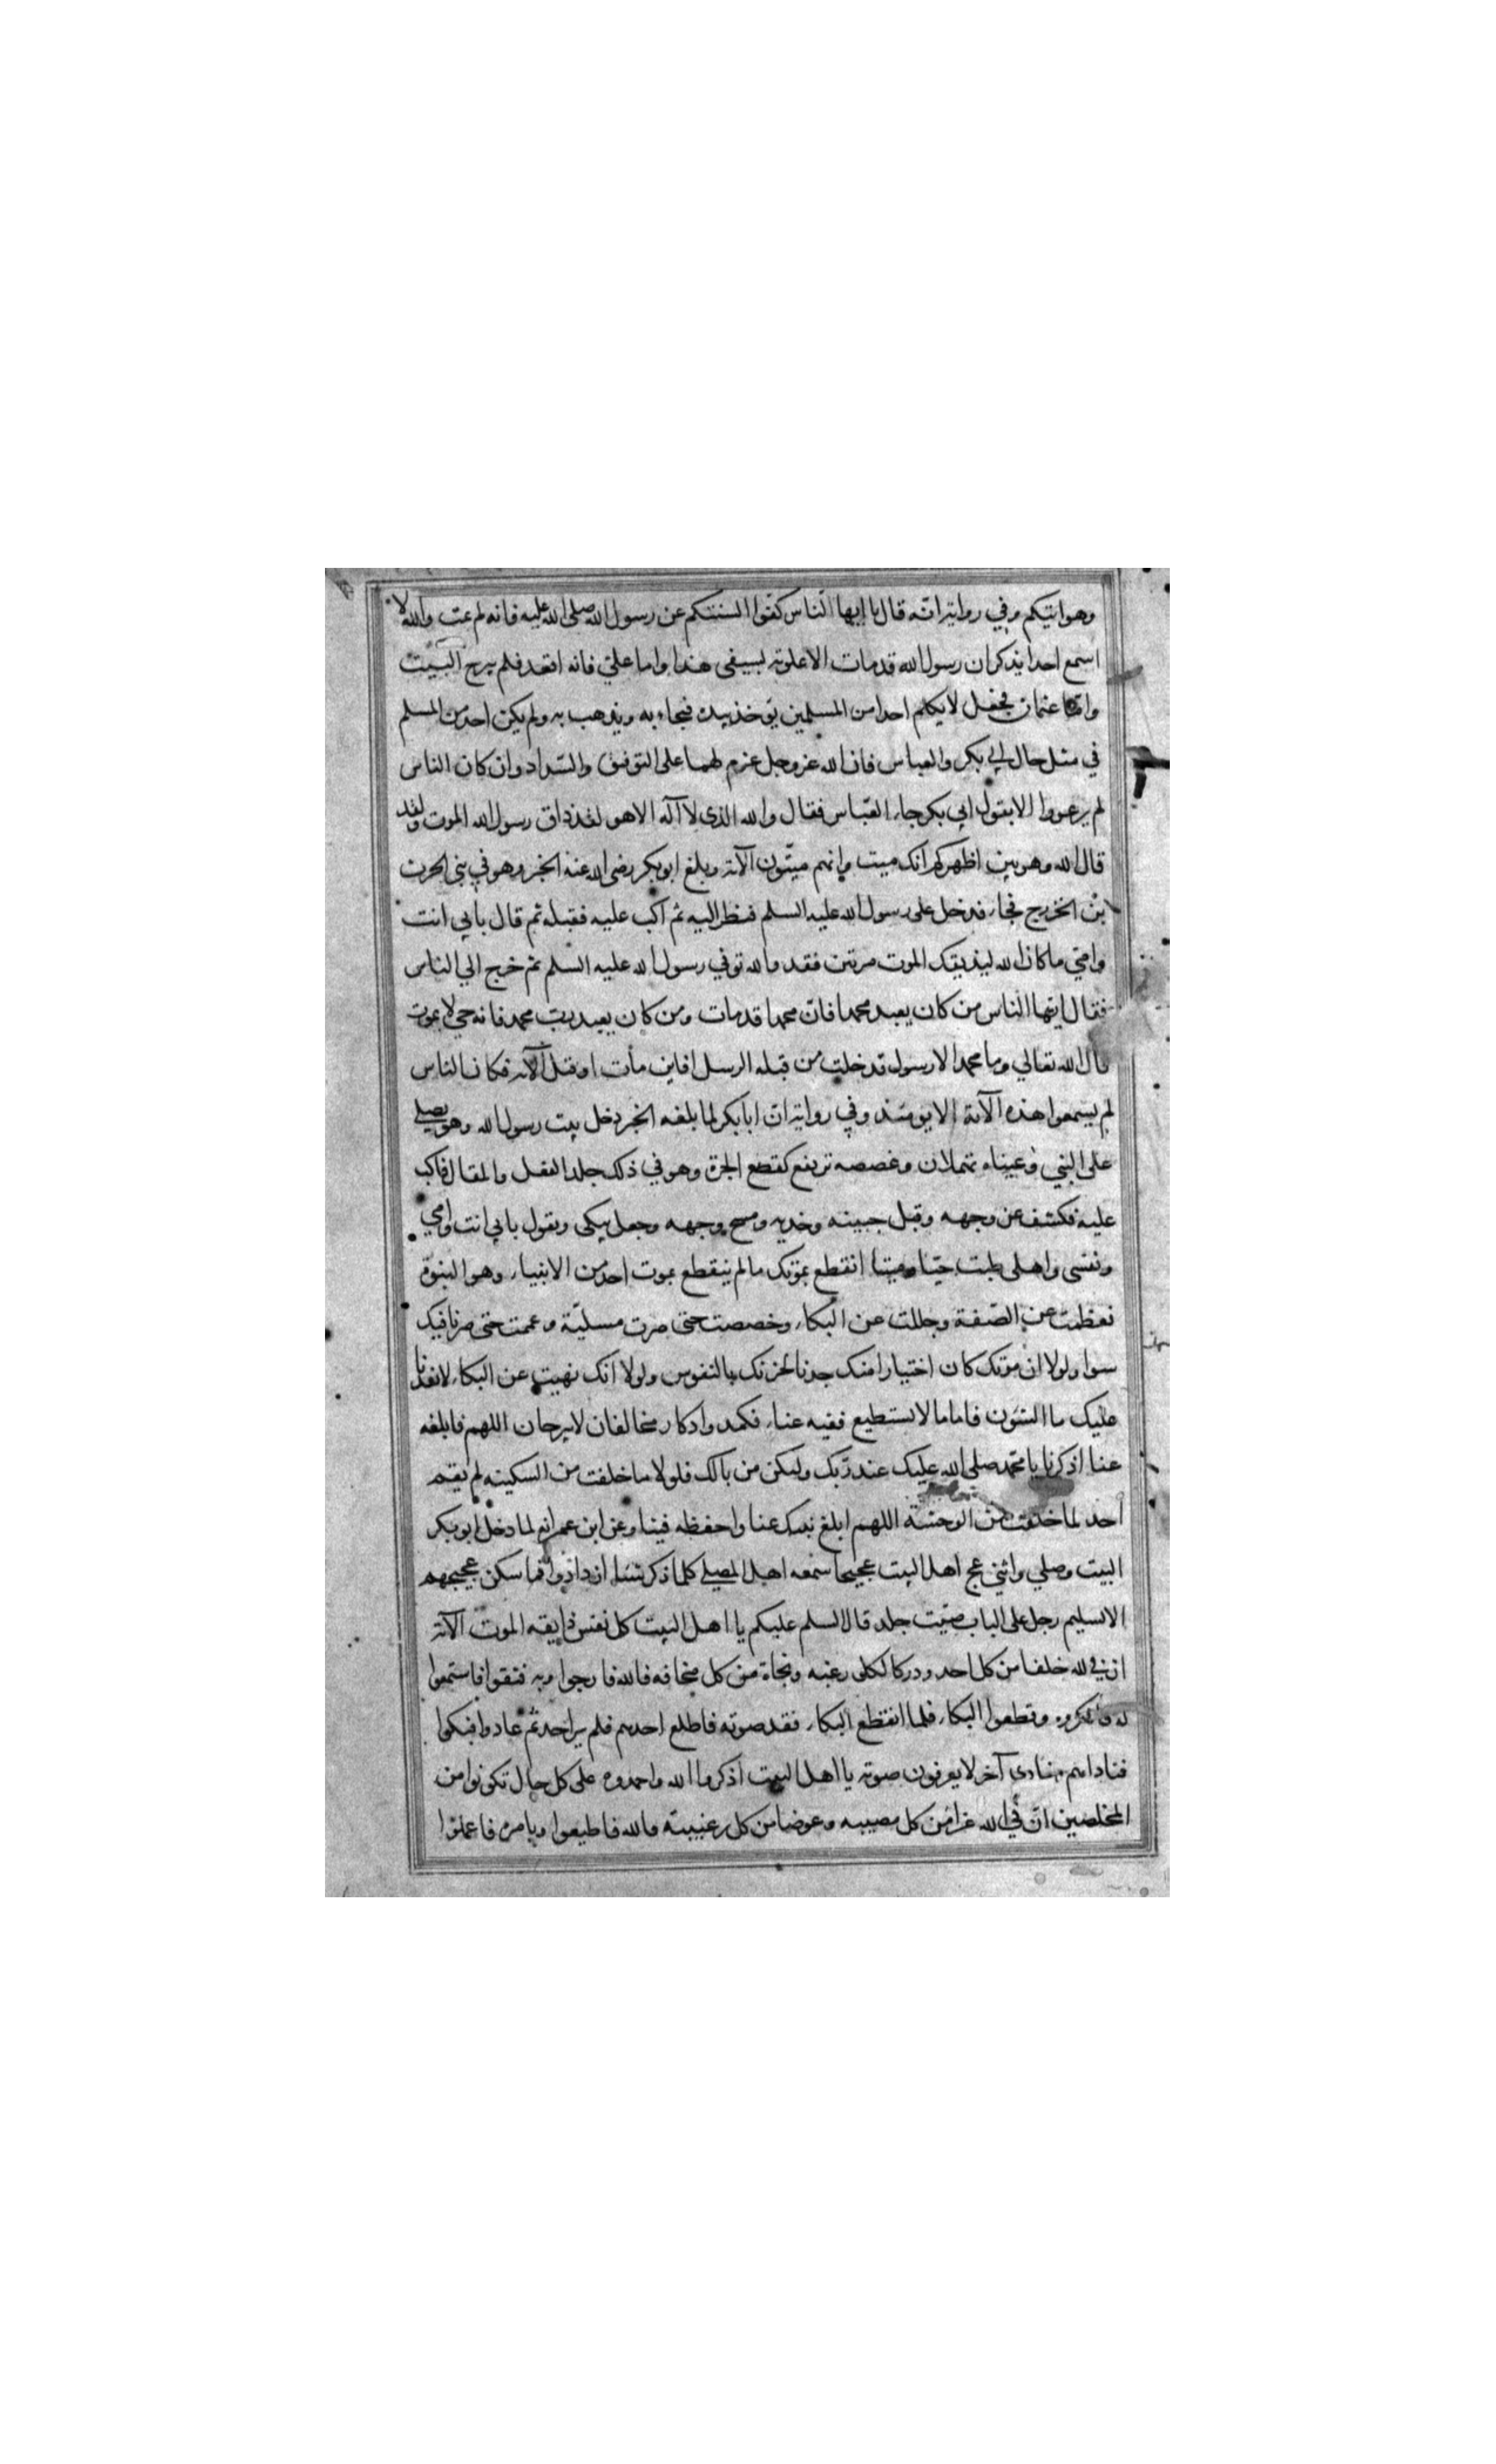 وهو اتيكم وفي رواية انه قال يا ايها الناس كفوا السنتكم عن رسول الله صلى الله عليه فانه لم يمت والله لا
اسمع احدا يذكر ان رسول الله قد مات الا علوته بسيفى هذا واما علي فانه اقعد فلم يبرح البيت
واما عثمان فجعل لا يكلم احدا من المسلمين يوخذ بيده فيجاء به ويذهب به ولم يكن احد من المسلم
في مثل حال ابي بكر والعباس فان الله عز وجل عزم لهما على التوفيق والسداد وان كان الناس
لم يرعووا الا بقول ابي بكر جاء العباس فقال والله الذى لا آله الا هو لقد ذاق رسول الله الموت ولقد
قال الله وهو بين اظهركم انك ميت وانهم ميتون الآية وبلغ ابو بكر رضى الله عنه الخبر وهو في بني الحرث
بن الخزرج فجاء فدخل على رسول الله عليه السلم فنظر اليه ثم اكب عليه فقبله ثم قال بابي انت
وامي ما كان الله ليذيقك الموت مرتين فقد والله توفي رسول الله عليه السلم ثم خرج الي الناس
فقال ايها الناس من كان يعبد محمدا فان محمدا قد مات ومن كان يعبد رب محمد فانه حي لا يموت
قال الله تعالي وما محمد الا رسول قد خلت من قبله الرسل افاين مات او قتل الآية فكان الناس
لم يسمعوا هذه الآية الا يومئذ وفي رواية ان ابا بكر لما بلغه الخبر دخل بيت رسول الله وهو يصلي
على النبي وعيناه تهملان وغصصه ترتفع كقطع الجرة وهو في ذلك جلد العقل والمقال فاكب
عليه فكشف عن وجهه وقبل جبينه وخديه ومسح وجهه وجعل يبكى ويقول بابي انت وامي
ونفسى واهلى طبت حيا وميتا انقطع بموتك ما لم ينقطع بموت احد من الانبياء وهو النبوة
فعظمت عن الصفة وجللت عن البكاء وخصصت حتى صرت مسلية وعممت حتى صرنا فيك
سوا ولولا ان موتك كان اختيارا منك جدنا لحزنك بالنفوس ولولا انك نهيت عن البكاء لانفدنا
عليك ما الشون فاما ما لا نستطيع نفيه عنا فكمد وادكار مخالفان لا يبرحان اللهم فابلغه
عنا اذكرنا يا محمد صلى الله عليك عند ربك ولنكن من بالك فلولا ما خلفت من السكينه لم يقم
احد لما خلفت من الوحشة اللهم ابلغ نبيك عنا واحفظه فينا وعن ابن عمر انه لما دخل ابو بكر
البيت وصلي واثني عج اهل البيت عجيجا سمعه اهل المصلي كلما ذكر شيئا ازدادوا فما سكن عجيجهم
الا تسليم رجل على الباب صيت جلد قال السلم عليكم يا اهل البيت كل نفس ذايقه الموت الآية
ان في الله خلفا من كل احد ودركا لكل رغبه ونجاة من كل مخافه فالله فارجوا وبه فثقوا فاستمعوا
له فانكروه وقطعوا البكاء فلما انقطع البكاء فقد صوته فاطلع احدهم فلم ير احد ثم عادوا فبكوا
فناداهم منادى آخر لا يعرفون صوته يا اهل البيت اذكروا الله واحمدوه على كل حال تكونوا من
المخلصين ان في الله عزا من كل مصيبه وعوضا من كل رغيبته والله فاطيعوا وبامره فاعملوا